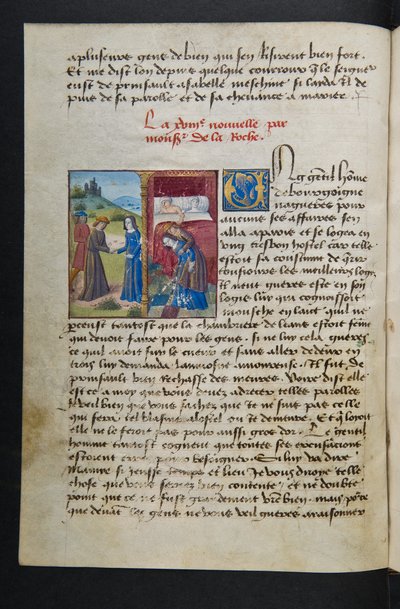 a pluseurs gens de bien qui s'en risirent bien fort.
Et me dist l'on depuis quelque courroux q̃ le seigneur
eust de prinsault a sa belle meschine si l'aida il de
puis de sa parolle et de sa chevance a marier.
La xviij.e nouvelle par
monss.r de la Roche.
Ung gentil hõme
de bourgoigne
nagueres pour
aucuns ses affaires s'en
alla a paris et se logea en
ung tresbon hostel car telle
estoit sa coustume de q̃rir
tousiours les meilleurs logis
Il n'eut gueres esté en son
logis luy qui cognoissoit
mousche en laict qu'il ne
perceust tantost que la chambriere de leans estoit fême
qui devoit faire pour les gens. si ne luy cela gueres
ce qu'il avoit sur le cueur et sans aller de deux en
trois luy demanda l'aumosne amoureuse. Il fut de
prinsault bien rechassé des meures. Voire dist elle
est ce a moy que vous devez adrecer telles parolles
Je vueil bien que vous sachez que je ne suis pas celle
qui fera tel blasme a l'ostel ou je demeure. Et q̃ l'oyoit
elle ne le feroit pas pour aussi gros d'or. Le gentil
homme tantost cogneut que toutes ses excusacions
estoient erres pour besoigner. Si luy va dire
Mamye si j'eusse temps et lieu Je vous diroye telle
chose que vous seriez bien contente / et ne doubte
point que ce ne fust grandement vr̃e bien. mais por ce
que devãt les gens ne vous veil gueres araisonner